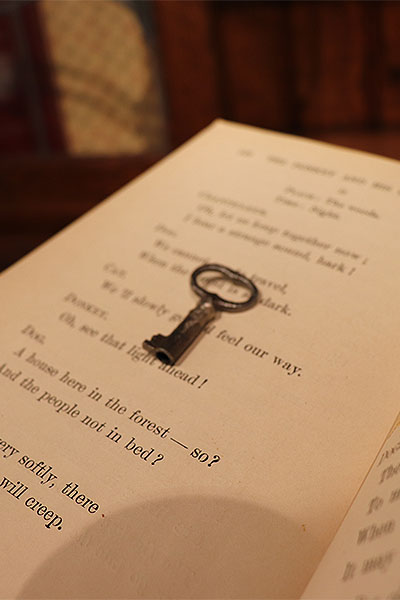 THE DONKEY AND HIS
Place: The woods.
Time: Night.
CHANTICLEER.
Oh, let us keep together now;
I hear a strange sound, hark!
DOG.
We cannot travel,
When the is dark.
CAT.
We'll slowly go feel our way.
DONKEY.
Oh, see that light ahead!
DOG.
A house here in the forest—so?
And the people not in bed?
very softly, there
will creep.
The
To
When
It may